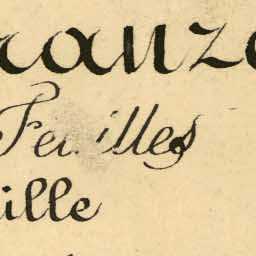 ranze
Feuilles
ille